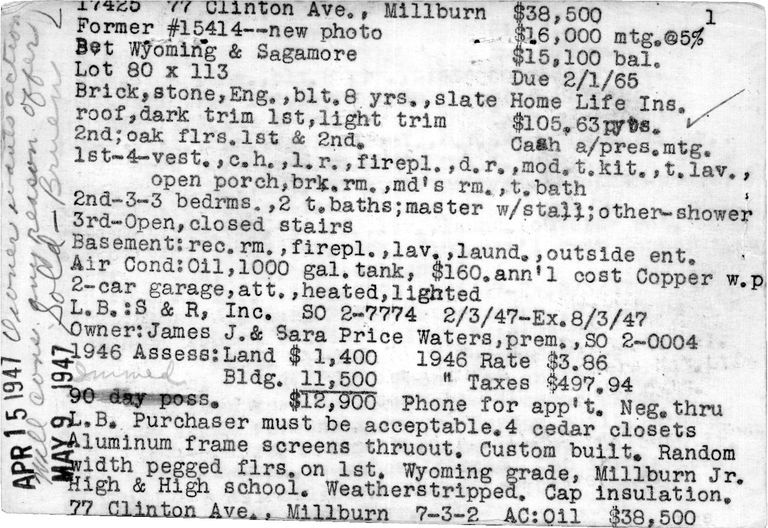 17425 77 Clinton Ave., Millburn $38,500 1
Former #15414--new photo $16,000 mtg.@5%
Bet Wyoming & Sagamore $15,100 bal.
Lot 80 x 113 Due 2/1/65
Brick,stone,Eng.,blt.8 yrs.,slate Home Life Ins.
roof,dark trim 1st,light trim $105.63pyts.
2nd;oak flrs.1st & 2nd. Cash a/pres.mtg.
1st-4-vest.,c.h.,l.r.,firepl.,d.r.,mod.t.kit.,t.lav.,
open porch,brk.rm.,md's rm.,t.bath
2nd-3-3 bedrms.,2 t.baths;master w/stall;other-shower
3rd-Open,closed stairs
Basement:rec.rm.,firepl.,lav.,laund.,outside ent.
Air Cond:Oil,1000 gal.tank, $160.ann'l cost Copper w.p
2-car garage,att.,heated,lighted
L.B.:S & R, Inc. SO 2-7774 2/3/47-Ex.8/3/47
Owner:James J.& Sara Price Waters,prem.,SO 2-0004
1946 Assess:Land $ 1,400 1946 Rate $3.86
Bldg. 11,500 " Taxes $497.94
90 day poss. $12,900 Phone for app't. Neg.thru
L.B. Purchaser must be acceptable.4 cedar closets
Aluminum frame screens thruout. Custom built. Random
width pegged flrs.on 1st. Wyoming grade, Millburn Jr.
High & High school. Weatherstripped. Cap insulation.
77 Clinton Ave., Millburn 7-3-2 AC:Oil $38,500
APR 15 1947 Owner wants action
Will cons. any reason offer
MAY 9 1947 Sold - Bruen